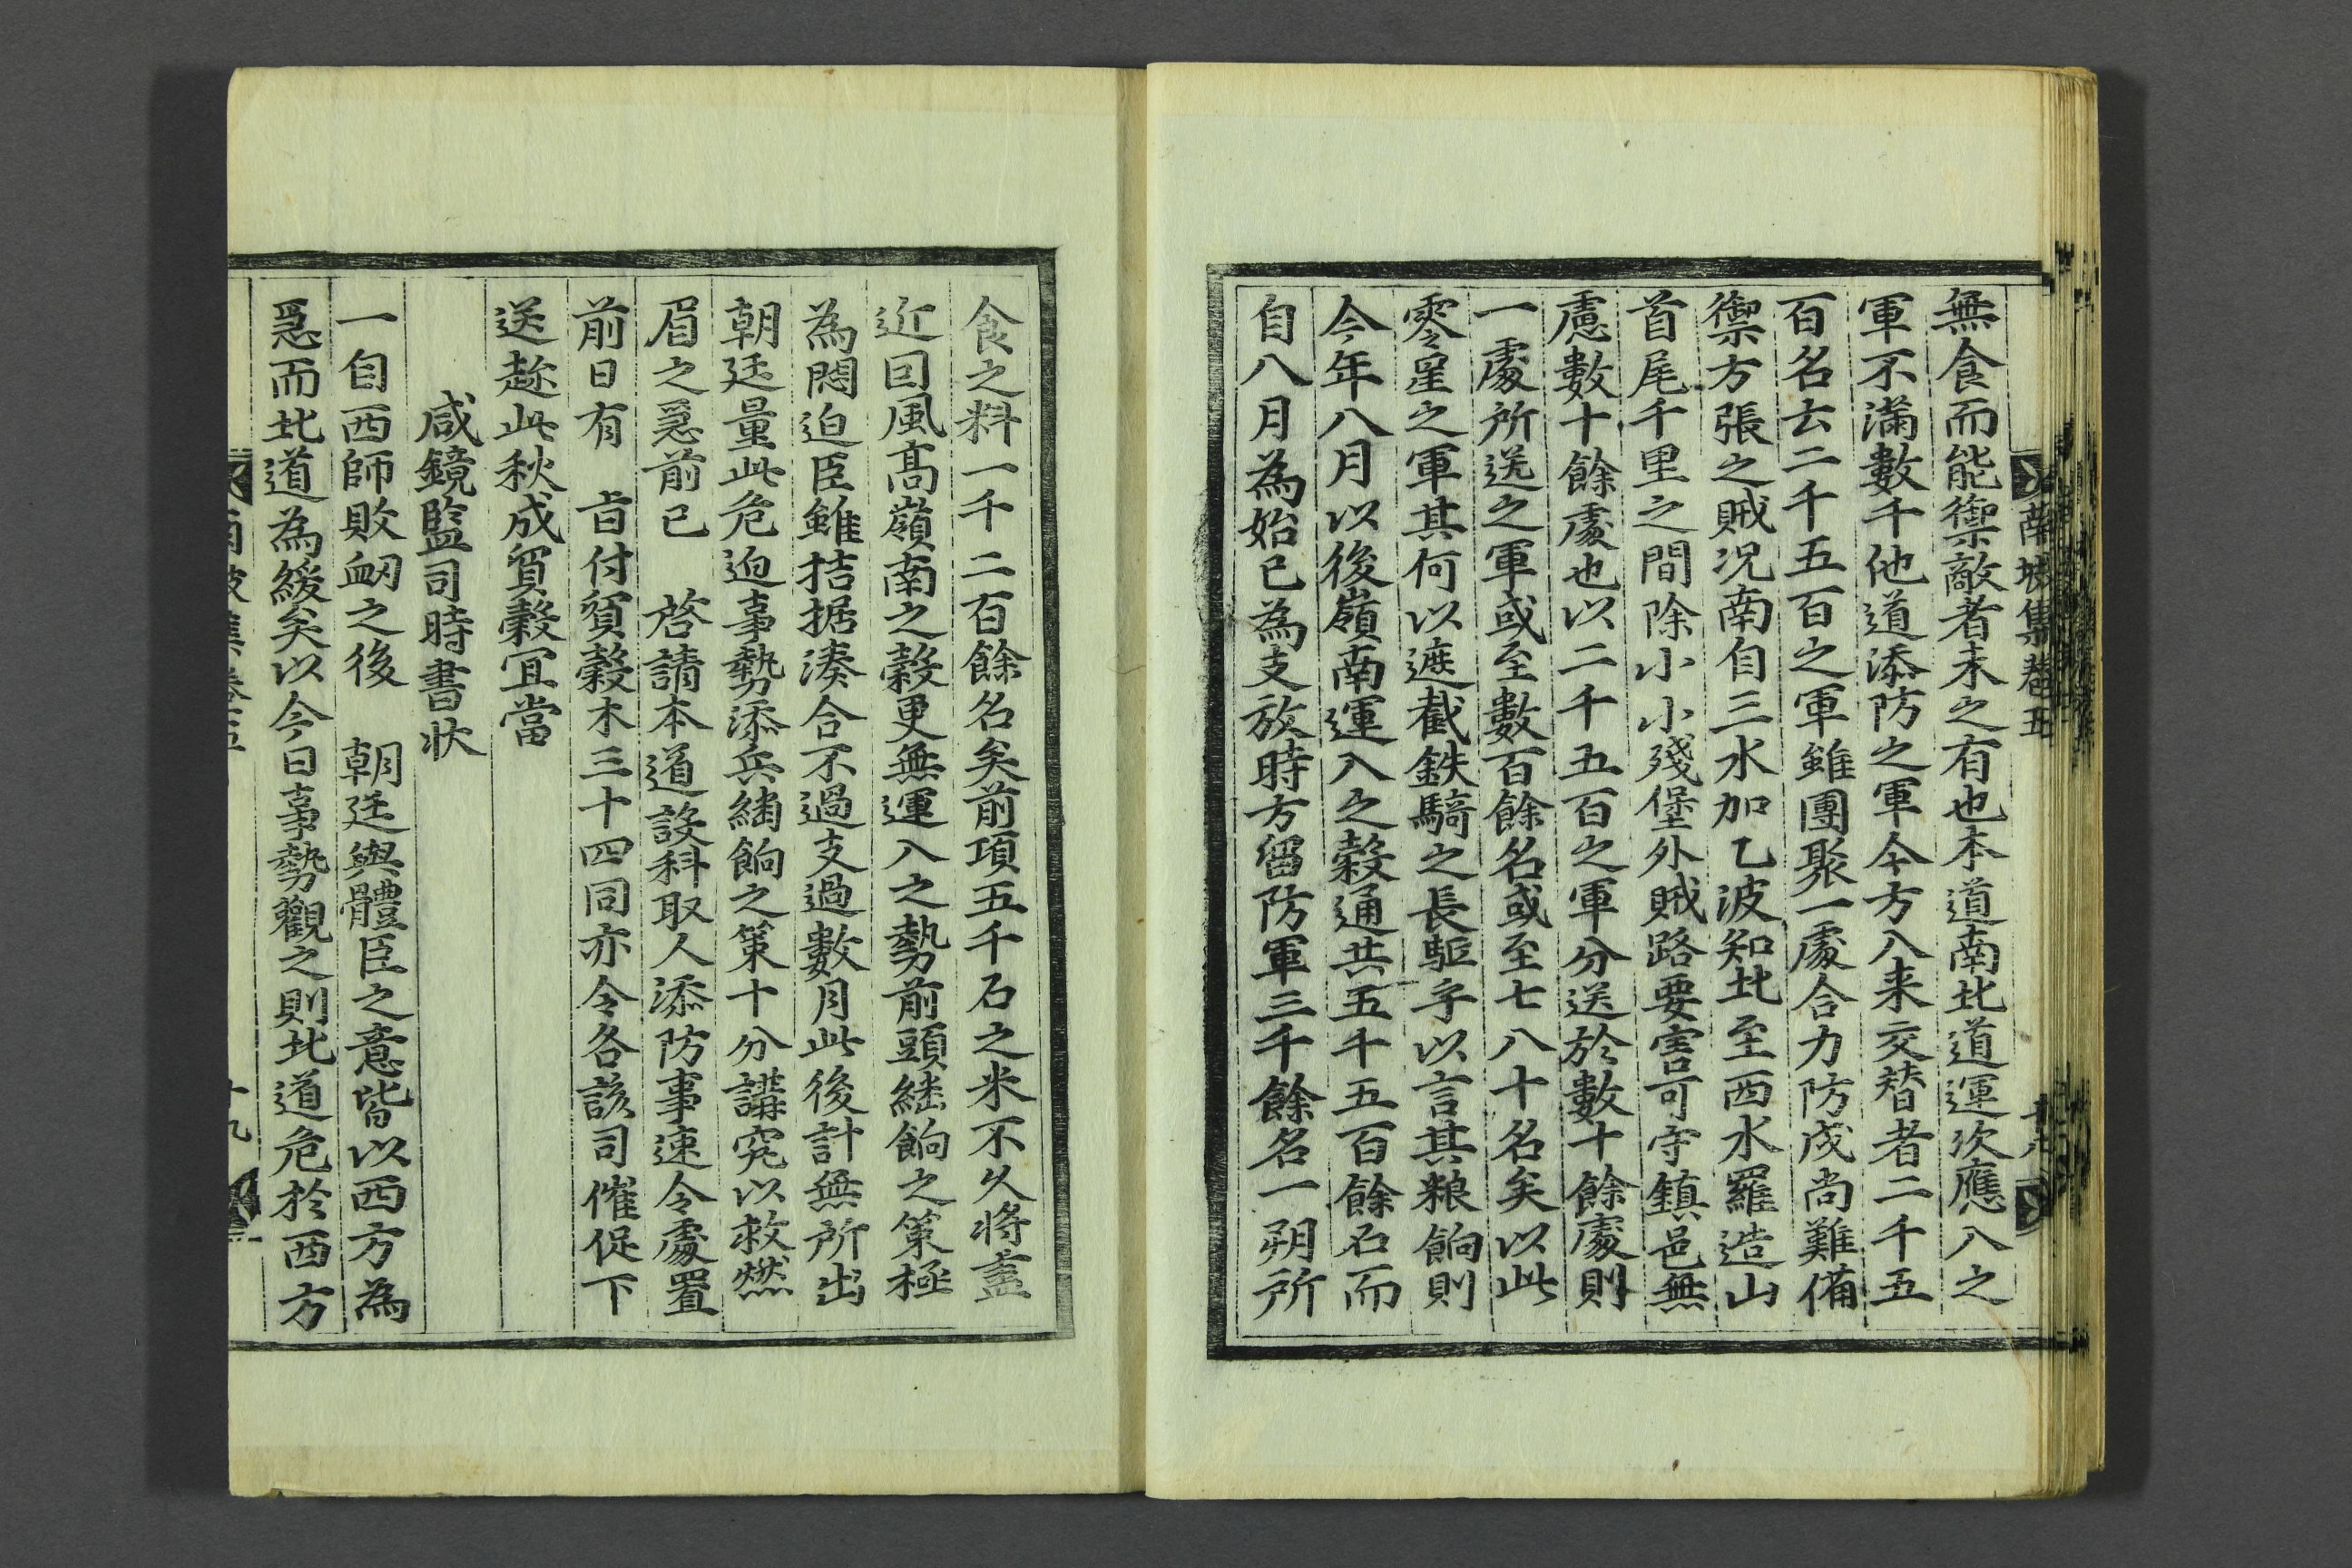 無食而能禦敵者未之有也本道南北道運次應入之
軍不滿數千他道添防之軍今方入来交替者二千五
百名去二千五百之軍雖團聚一處合力防戍尚難備
禦方張之賊况南自三水加乙波知北至西水羅造山
首尾千里之間除小小殘堡外賊路要害可守鎮邑無
慮數十餘處也以二千五百之軍分送於數十餘處則
一處所送之軍或至數百餘名或至七八十名矣以此
零星之軍其何以遮截鉄騎之長驅乎以言其粮餉則
今年八月以後嶺南運入之穀通共五千五百餘石而
自八月為始已為支放時方留防軍三千餘名一朔所
食之料一千二百餘名矣前項五千石之米不久將盡
近囙風高嶺南之穀更無運入之勢前頭繼餉之策極
為悶迫臣雖拮据湊合不過支過數月此後計無所出
朝廷量此危迫事勢添兵繼餉之策十分講究以救燃
眉之急前已 啓請本道設科取人添防事速令處置
前日有 旨付貿穀木三十四同亦令各該司催促下
送趂此秋成貿穀冝當
咸鏡監司時書狀
一自西師敗衂之後 朝廷與體臣之意皆以西方為
急而北道為緩矣以今日事勢觀之則北道危於西方